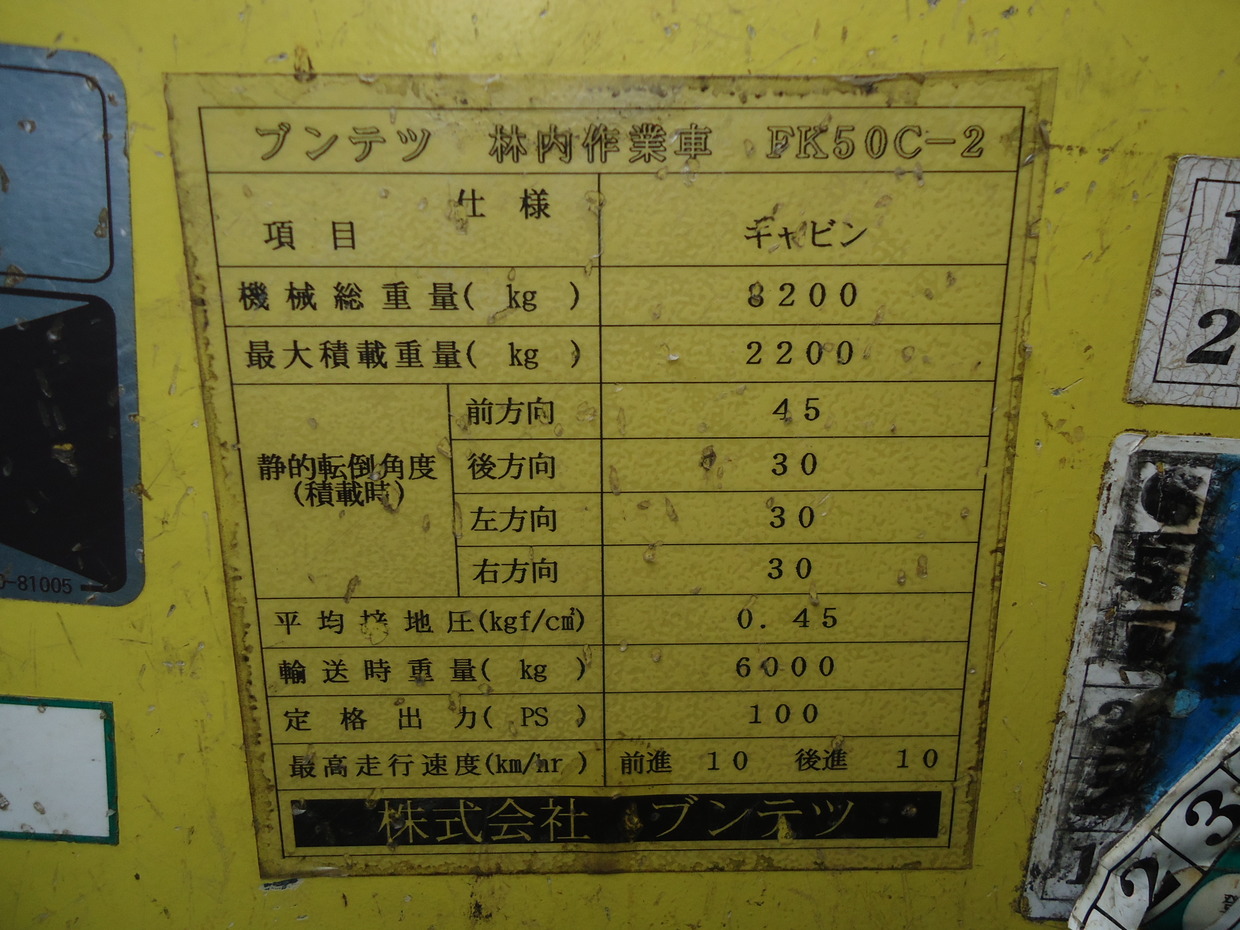 ブンテツ 林内作業車 FK50C-2
仕様
項目
キャビン
機械総重量( kg ) 8200
最大積載重量( kg ) 2200
静的転倒角度
(積載時)
前方向 45
後方向 30
左方向 30
右方向 30
平均接地圧(kgf/c㎡) 0.45
輸送時重量( kg ) 6000
定格出力( PS ) 100
最高走行速度(km/hr ) 前進 10 後進 10
株式会社 ブンテツ
-81005
1
2
1
2
3